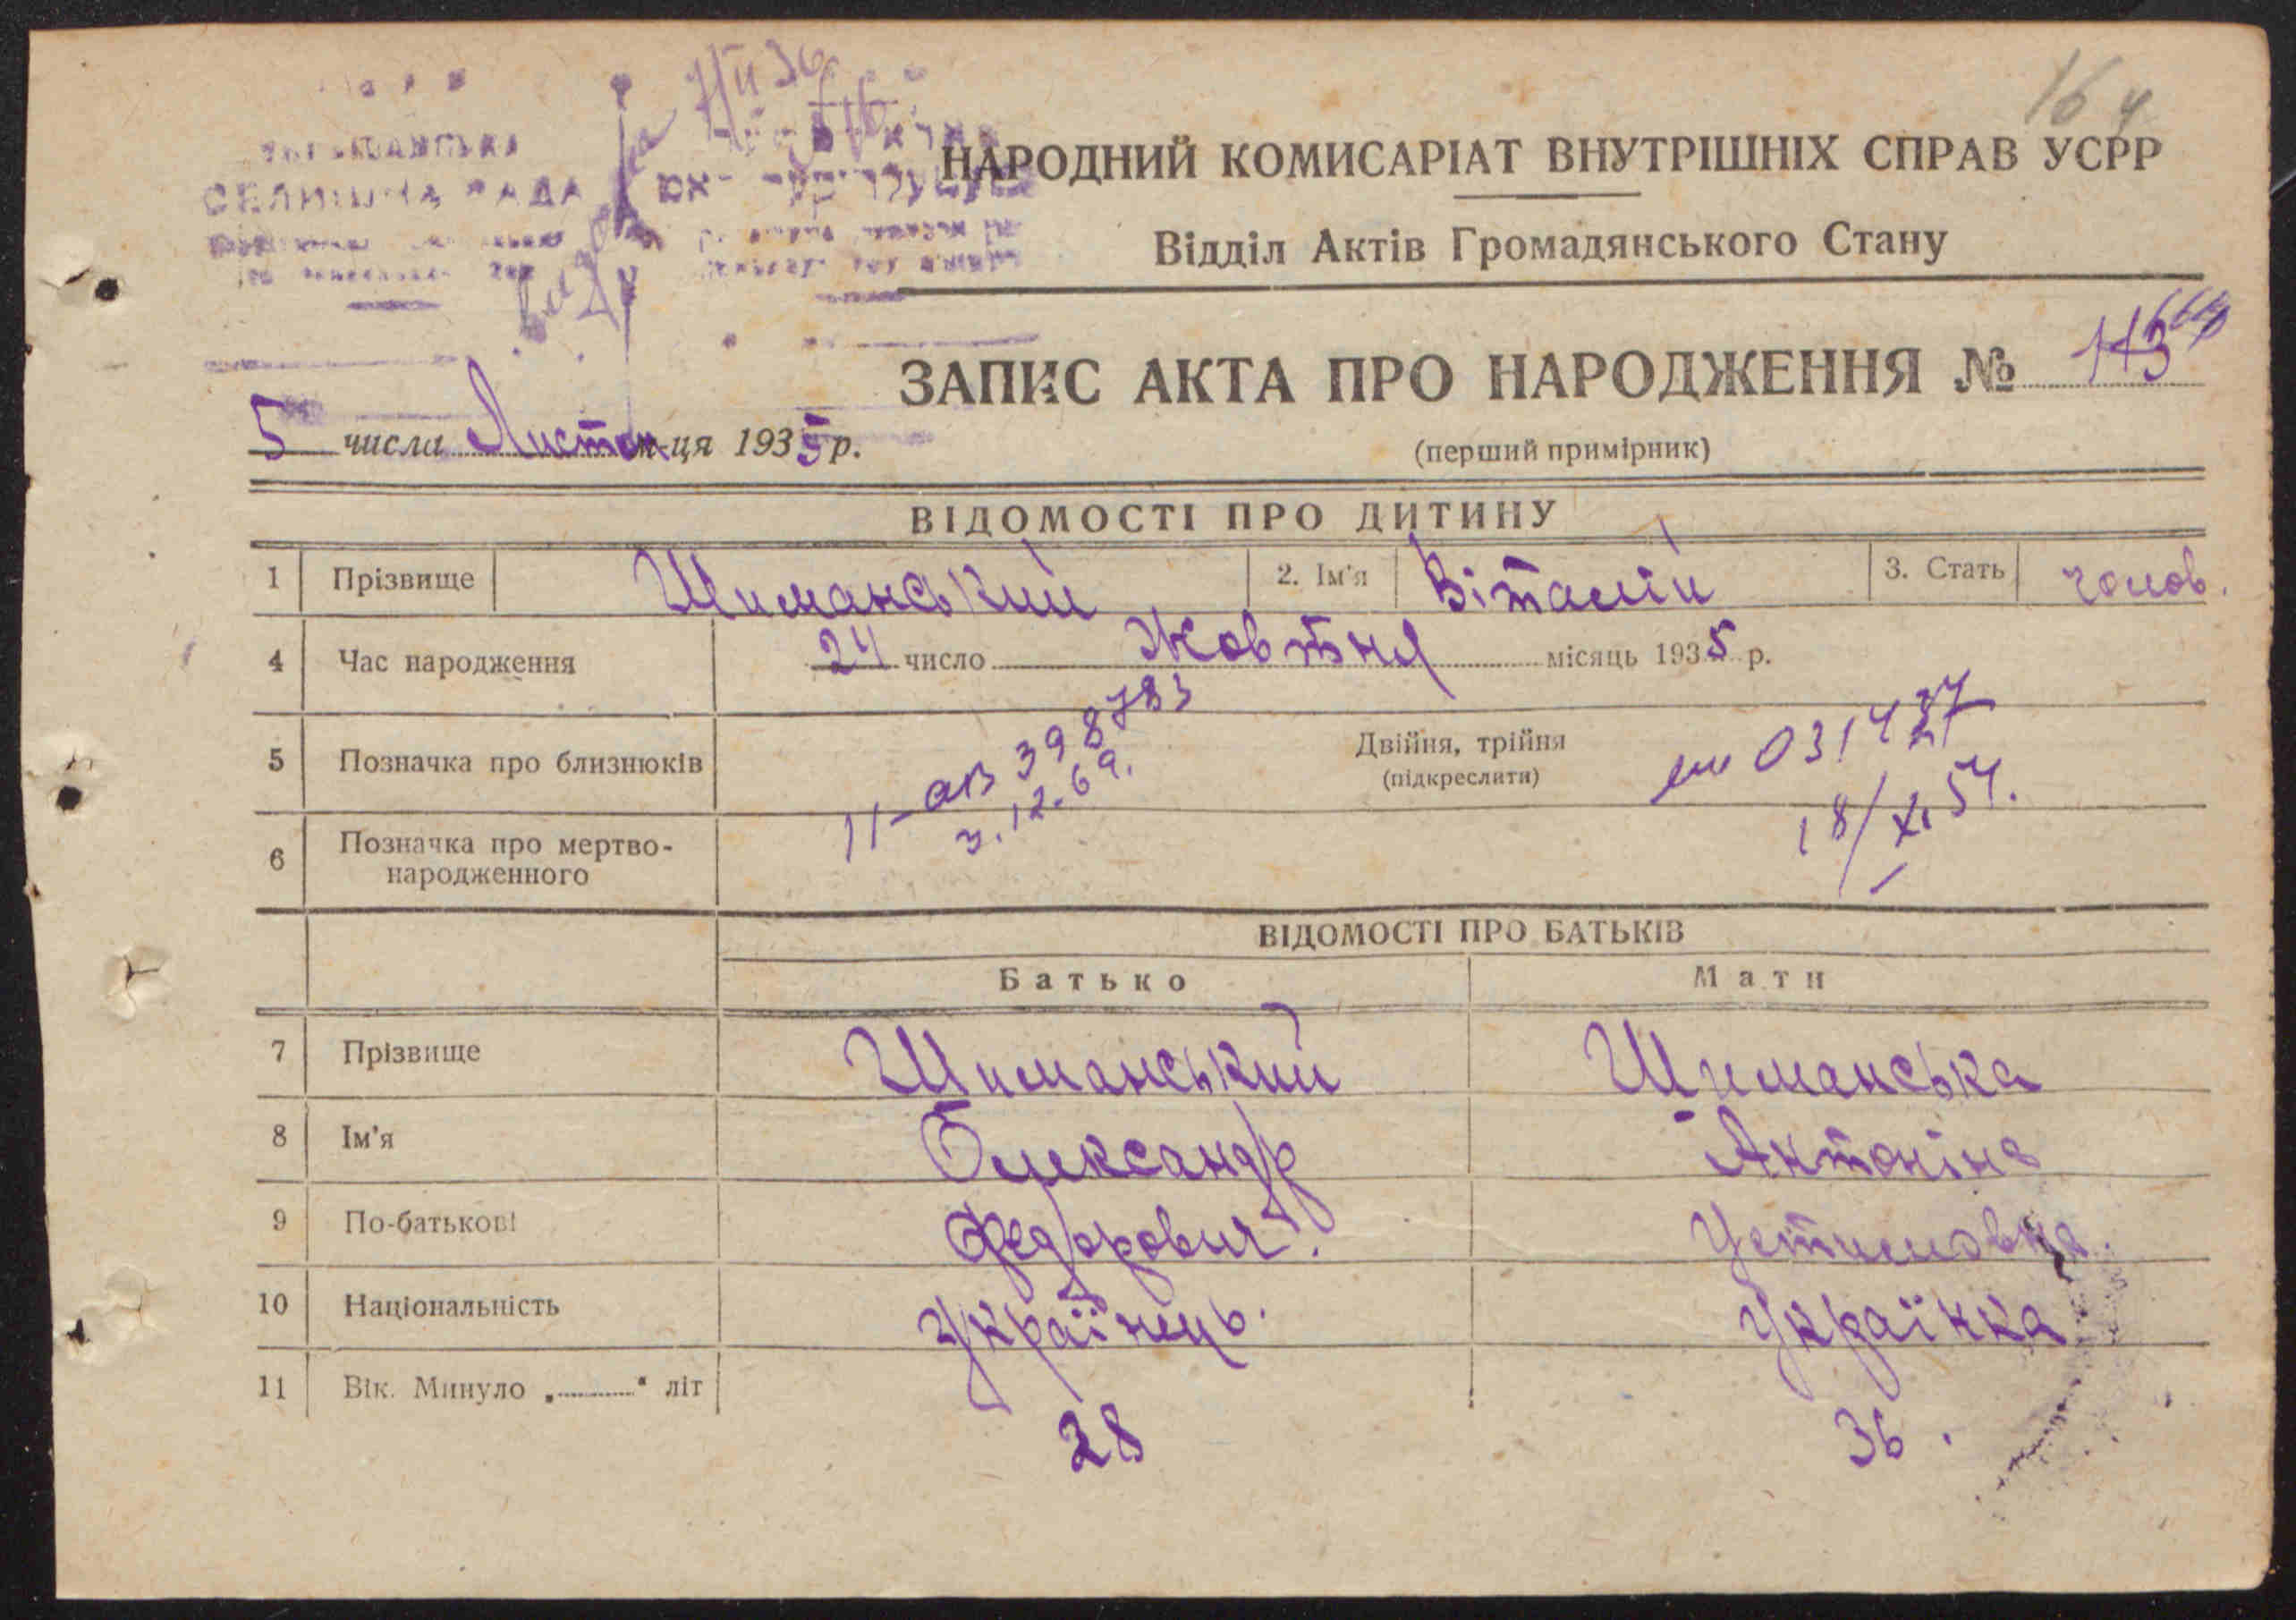 16 ч
7/II 36
СЕЛИЩНА РАДА
НАРОДНИЙ КОМИСАРІАТ ВНУТРІШНІХ СПРАВ УСРР
Відділ Актів Громадянського Стану
ЗАПИС АКТА ПРО НАРОДЖЕННЯ № 113
5 числа Листоп м-ця 1935 р.
(перший примірник)
ВІДОМОСТІ ПРО ДИТИНУ
1 Прізвище Шиманський 2. Ім'я Віталій 3. Стать чолов.
4 Час народження 24 число Жовтня місяць 1935 р.
5 Позначка про близнюків Двійня, трійня
(підкреслити)
11-ав 398783
3.12.69.
031427
18/XI 54.
6 Позначка про мертво-
народженного
ВІДОМОСТІ ПРО БАТЬКІВ
Батько Мати
7 Прізвище Шиманський Шиманська
8 Ім'я Олександр Антоніна
9 По-батькові Федорович. Устимовна.
10 Національність Українець. Українка
11 Вік. Минуло „ " літ 28 36.